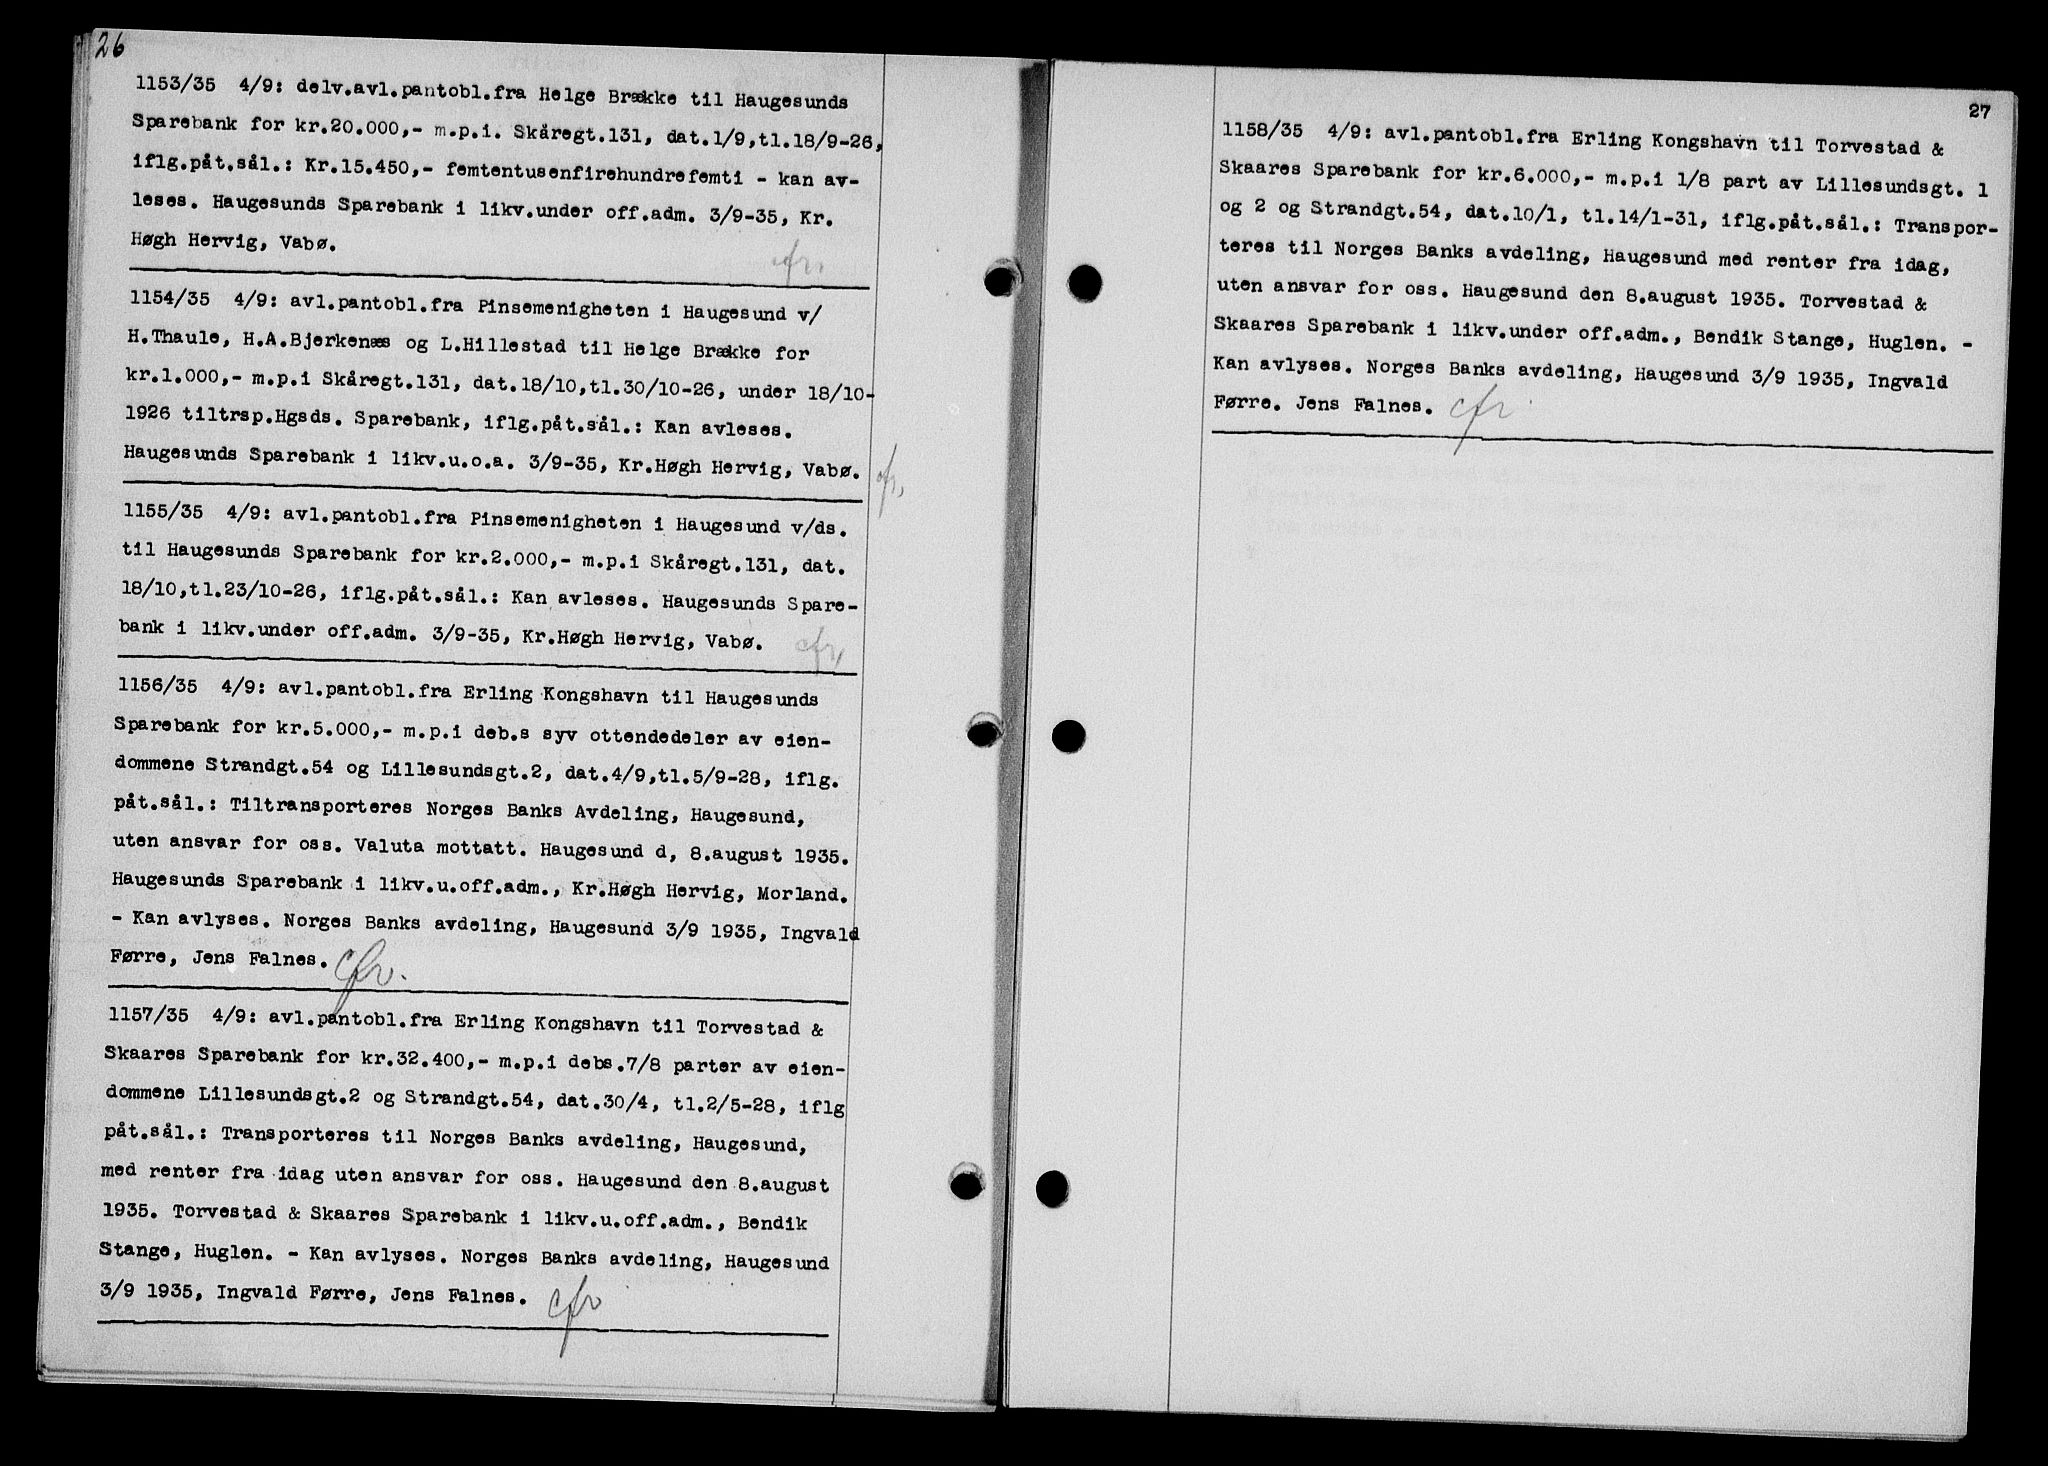 26
1153/35 4/9: delv.avl.pantobl.fra Helge Brække til Haugesunds
Sparebank for kr.20.000,- m.p.i. Skåregt.131, dat.1/9,tl.18/9-26,
iflg.påt.sål.: Kr.15.450,- femtentusenfirehundrefemti - kan av-
leses. Haugesunds Sparebank i likv.under off.adm. 3/9-35, Kr.
Høgh Hervig, Vabø.
cfr,
1154/35 4/9: avl.pantobl.fra Pinsemenigheten i Haugesund v/
H.Thaule, H.A.Bjerkenæs og L.Hillestad til Helge Brække for
kr.1.000,- m.p.i Skåregt.131, dat.18/10,tl.30/10-26, under 18/10-
1926 tiltrsp.Hgsds. Sparebank, iflg.påt.sål.: Kan avleses.
Haugesunds Sparebank i likv.u.o.a. 3/9-35, Kr.Høgh Hervig, Vabø.
cfr,
1155/35 4/9: avl.pantobl.fra Pinsemenigheten i Haugesund v/ds.
til Haugesunds Sparebank for kr.2.000,- m.p.i Skåregt.131, dat.
18/10,tl.23/10-26, iflg.påt.sål.: Kan avleses. Haugesunds Spare-
bank i likv.under off.adm. 3/9-35, Kr.Høgh Hervig, Vabø. cfr,
1156/35 4/9: avl.pantobl.fra Erling Kongshavn til Haugesunds
Sparebank for kr.5.000,- m.p.i deb.s syv ottendedeler av eien-
dommene Strandgt.54 og Lillesundsgt.2, dat.4/9,tl.5/9-28, iflg.
påt.sål.: Tiltransporteres Norges Banks Avdeling, Haugesund,
uten ansvar for oss. Valuta mottatt. Haugesund d, 8.august 1935.
Haugesunds Sparebank i likv.u.off.adm., Kr.Høgh Hervig, Morland.
- Kan avlyses. Norges Banks avdeling, Haugesund 3/9 1935, Ingvald
Førre, Jens Falnes. cfr.
1157/35 4/9: avl.pantobl.fra Erling Kongshavn til Torvestad &
Skaares Sparebank for kr.32.400,- m.p.i debs.7/8 parter av eien-
dommene Lillesundsgt.2 og Strandgt.54, dat.30/4, tl.2/5-28, iflg
påt.sål.: Transporteres til Norges Banks avdeling, Haugesund,
med renter fra idag uten ansvar for oss. Haugesund den 8.august
1935. Torvestad & Skaares Sparebank i likv.u.off.adm., Bendik
Stange, Huglen. - Kan avlyses. Norges Banks avdeling, Haugesund
3/9 1935, Ingvald Førre, Jens Falnes. cfr
27
1158/35 4/9: avl.pantobl.fra Erling Kongshavn til Torvestad &
Skaares Sparebank for kr.6.000,- m.p.i 1/8 part av Lillesundsgt. 1
og 2 og Strandgt.54, dat.10/1, tl.14/1-31, iflg.påt.sål.: Transpor-
teres til Norges Banks avdeling, Haugesund med renter fra idag,
uten ansvar for oss. Haugesund den 8.august 1935. Torvestad &
Skaares Sparebank i likv.under off.adm., Bendik Stange, Huglen. -
Kan avlyses. Norges Banks avdeling, Haugesund 3/9 1935, Ingvald
Førre. Jens Falnes. cfr